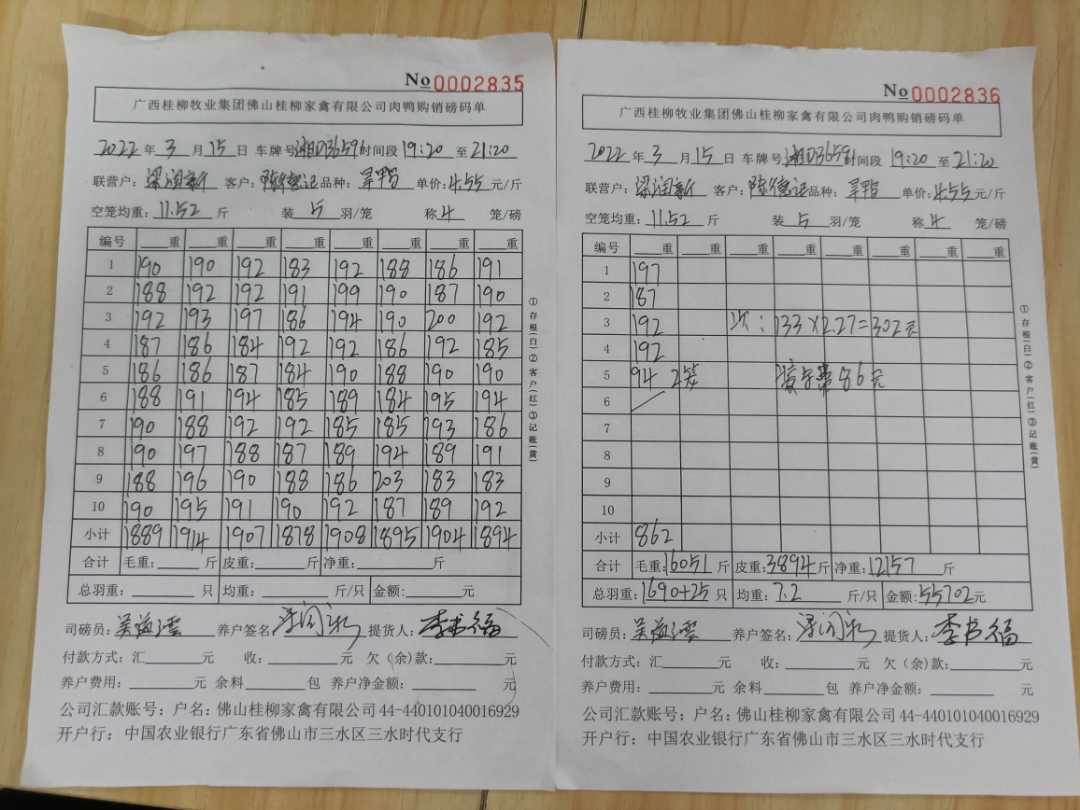 No 0002835
广西桂柳牧业集团佛山桂柳家禽有限公司肉鸭购销磅码单
2022 年 3 月 15 日 车牌号 湘D36596 时间段 19:20 至 21:20
联营户: 梁润新 客户: 陈德记 品种: 旱鸭 单价: 4.55 元/斤
空笼均重: 11.52 斤 装 5 羽/笼 称 4 笼/磅
编号 重 重 重 重 重 重 重 重
1 190 190 192 183 192 188 186 191
2 188 192 192 191 199 190 187 190
3 192 193 197 186 194 190 200 192
4 187 186 184 192 192 186 192 185
5 186 186 187 184 190 188 190 190
6 188 191 194 185 189 184 195 194
7 190 188 192 192 185 185 193 186
8 190 197 188 187 189 194 189 191
9 188 196 190 188 186 203 183 183
10 190 195 191 190 192 187 189 192
小计 1889 1914 1907 1878 1908 1895 1904 1894
合计 毛重: 斤 皮重: 斤 净重: 斤
总羽重: 只 均重: 斤/只 金额: 元
司磅员: 养户签名 提货人: 李书福
付款方式: 汇 元 收: 元 欠(余)款: 元
养户费用: 元 余料 包 养户净金额: 元
公司汇款账号: 户名: 佛山桂柳家禽有限公司 44-440101040016929
开户行: 中国农业银行广东省佛山市三水区三水时代支行
①存根(白)②客户(红)③记账(黄)
No 0002836
广西桂柳牧业集团佛山桂柳家禽有限公司肉鸭购销磅码单
2022 年 3 月 15 日 车牌号 湘D36596 时间段 19:20 至 21:20
联营户: 梁润新 客户: 陈德记 品种: 旱鸭 单价: 4.55 元/斤
空笼均重: 11.52 斤 装 5 羽/笼 称 4 笼/磅
编号 重 重 重 重 重 重 重 重
1 197
2 187
3 192 次: 133×2.27=302元
4 192
5 94 2笼 86元
6
7
8
9
10
小计 862
合计 毛重: 16051 斤 皮重: 3894 斤 净重: 12157 斤
总羽重: 1690+25 只 均重: 7.2 斤/只 金额: 55702 元
司磅员: 养户签名: 提货人: 李书福
付款方式: 汇 元 收: 元 欠(余)款: 元
养户费用: 元 余料 包 养户净金额: 元
公司汇款账号: 户名: 佛山桂柳家禽有限公司 44-440101040016929
开户行: 中国农业银行广东省佛山市三水区三水时代支行
①存根(白)②客户(红)③记账(黄)